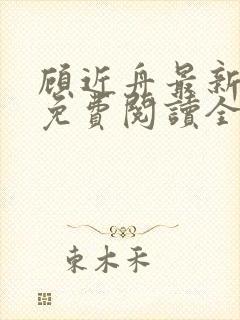 顾近舟最新
免費閱讀全
東木禾